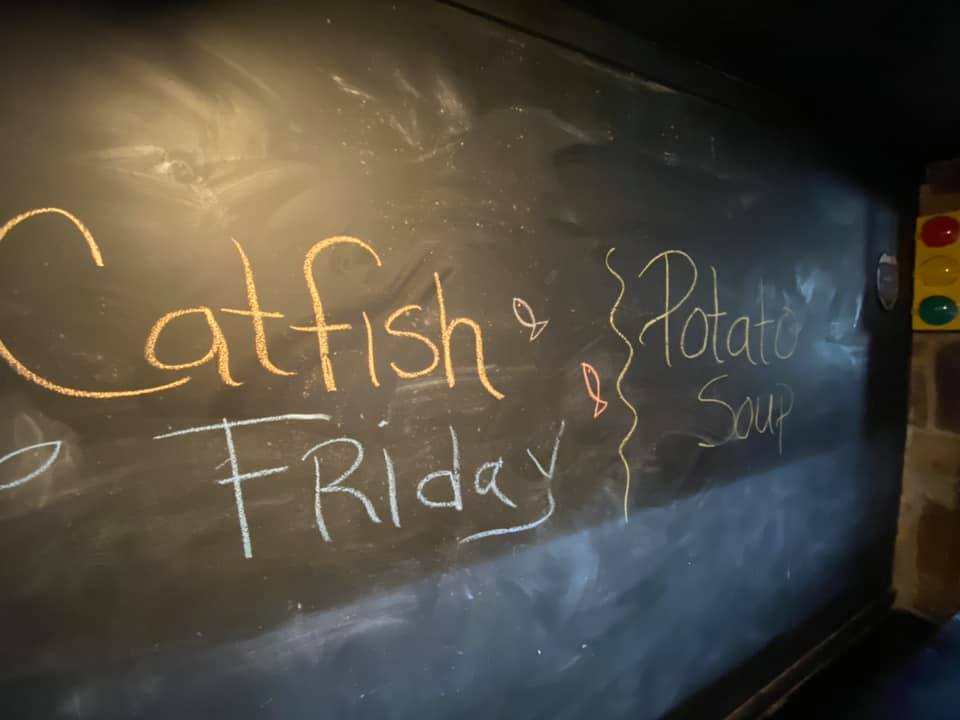 Catfish
FRiday
Potato
Soup